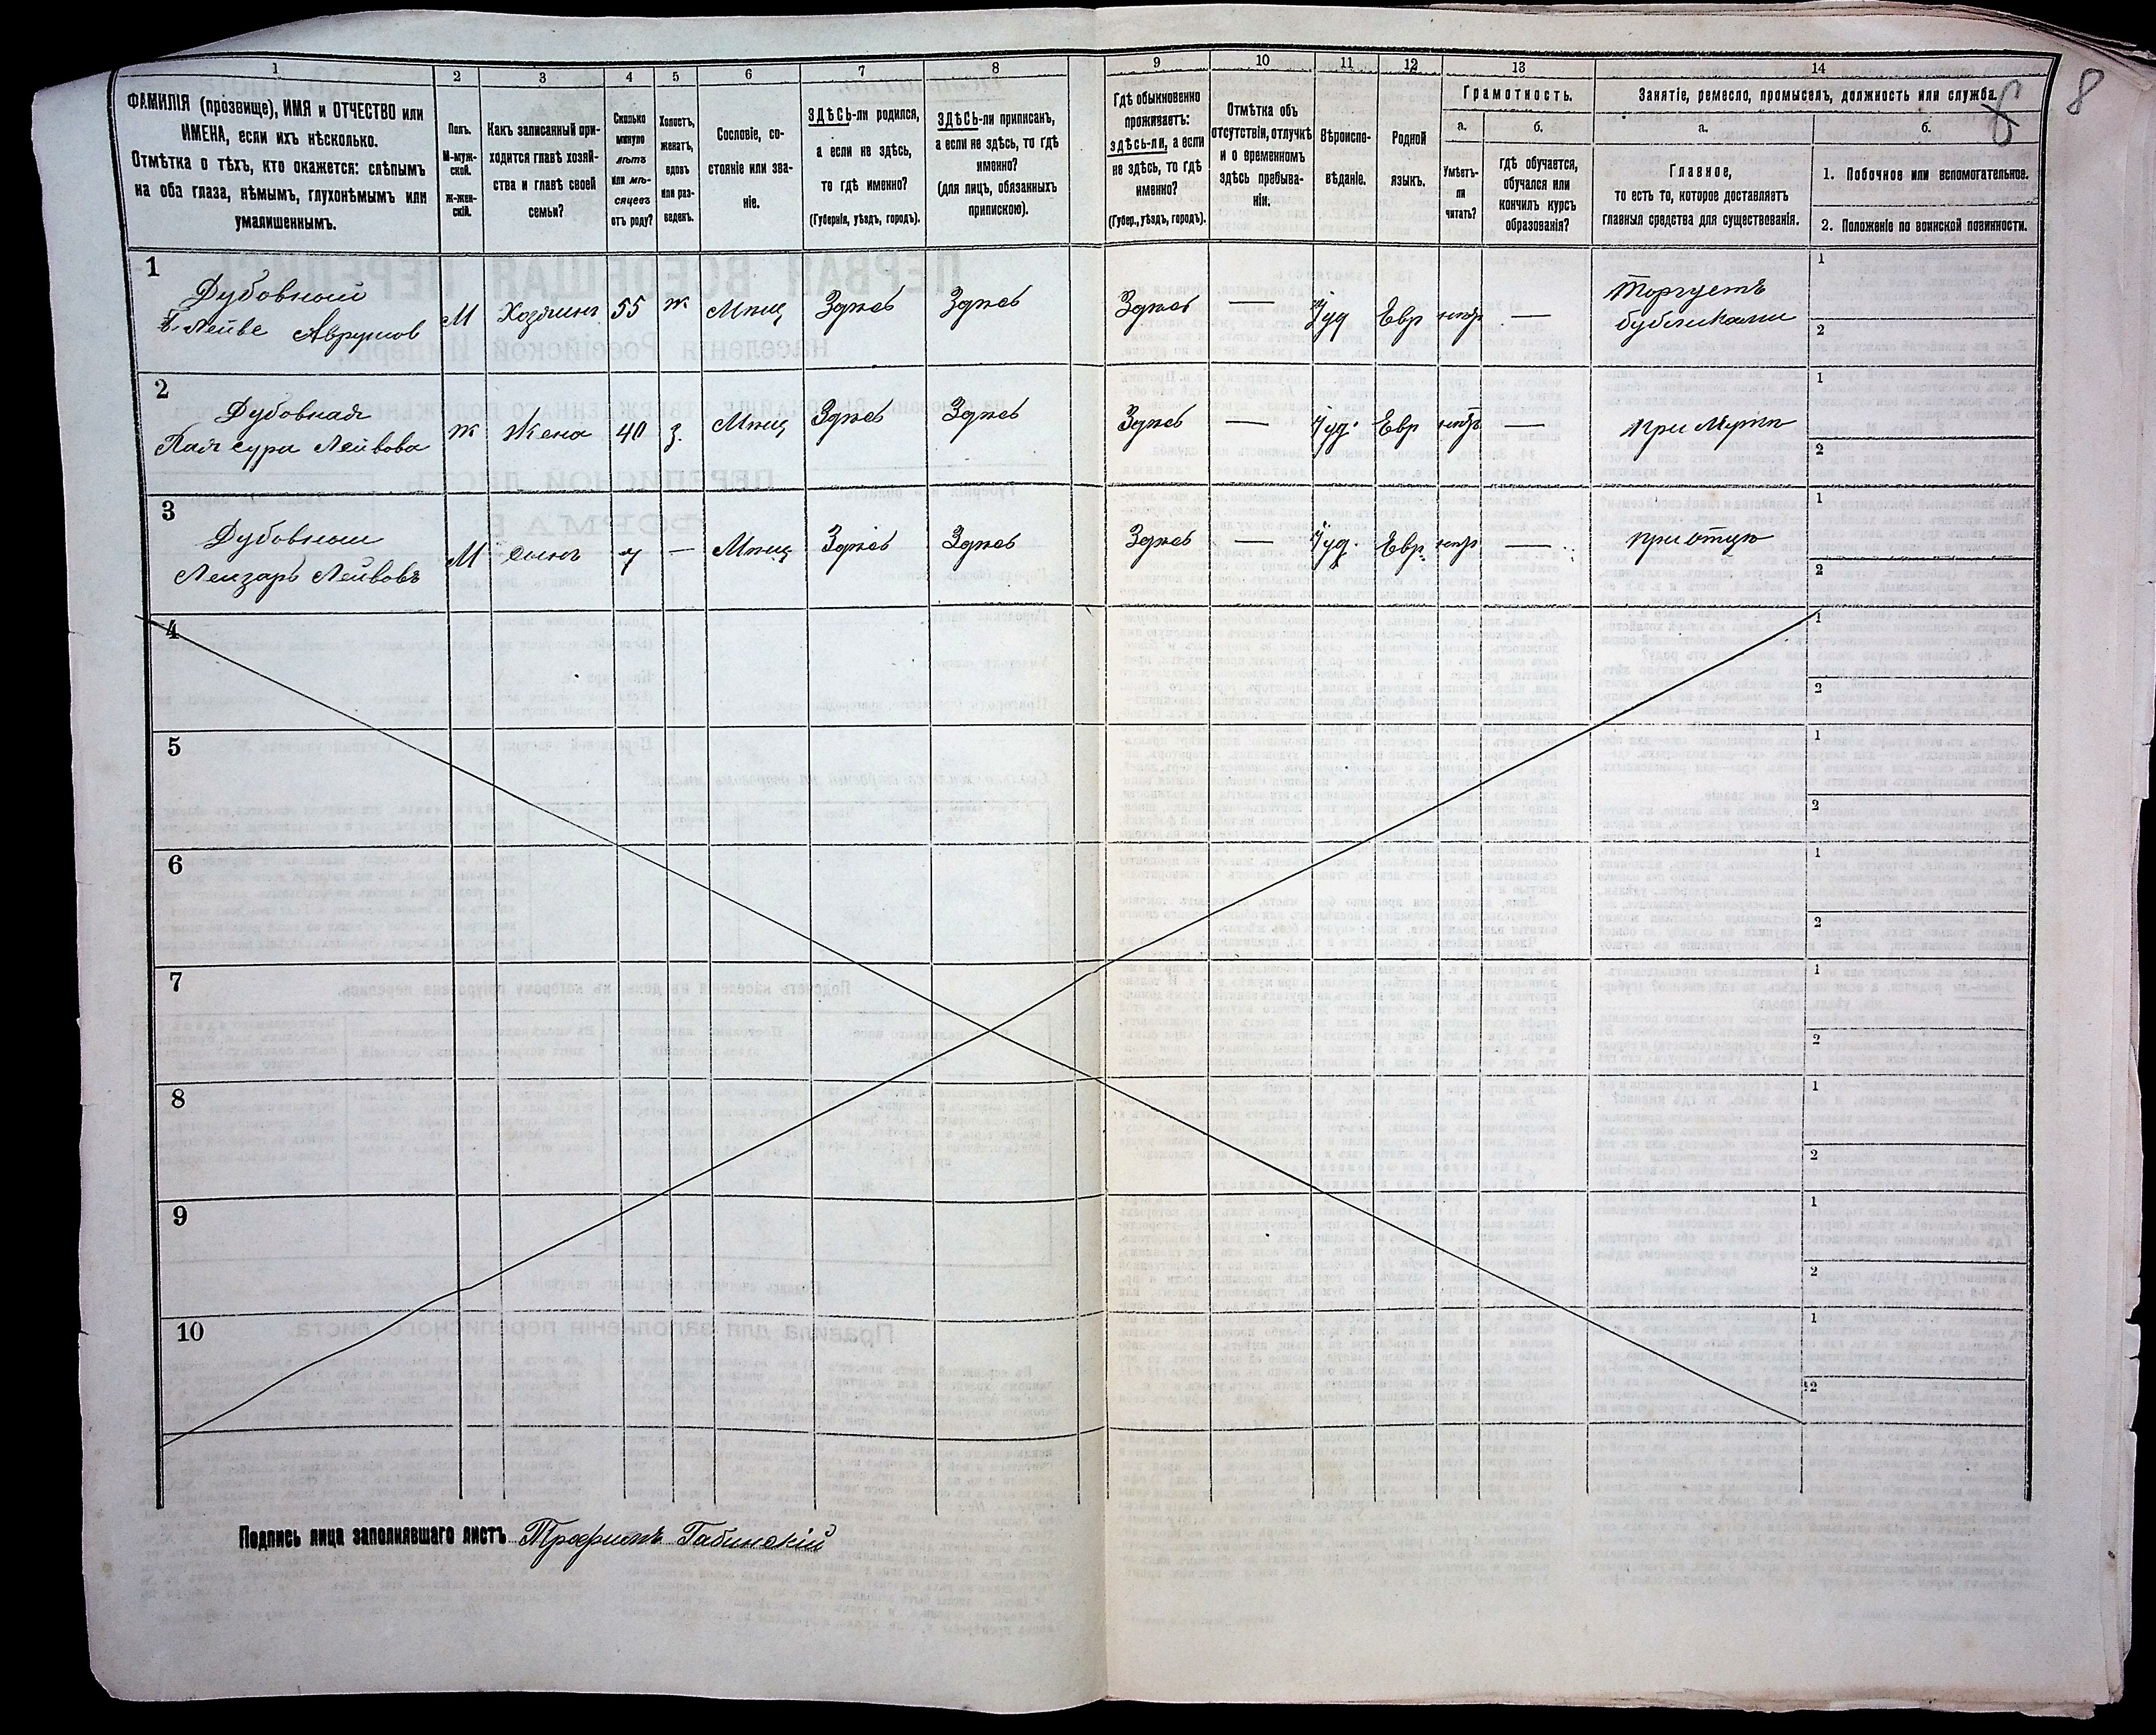 8
1 2 3 4 5 6 7 8 9 10 11 12 13 14
ФАМИЛІЯ (прозвище), ИМЯ и ОТЧЕСТВО или
ИМЕНА, если ихъ нѣсколько.
Отмѣтка о тѣхъ, кто окажется: слѣпымъ
на оба глаза, нѣмымъ, глухонѣмымъ или
умалишеннымъ.
Полъ.
М-муж-
ской.
Ж-жен-
скій.
Какъ записанный при-
ходится главѣ хозяй-
ства и главѣ своей
семьи?
Сколько
минуло
лѣтъ
или мѣ-
сяцевъ
отъ роду?
Холостъ,
женатъ,
вдовъ
или раз-
веденъ.
Сословіе, со-
стояніе или зва-
ніе.
ЗДѢСЬ-ли родился,
а если не здѣсь,
то гдѣ именно?
(Губернія, уѣздъ, городъ).
ЗДѢСЬ-ли приписанъ,
а если не здѣсь, то гдѣ
именно?
(для лицъ, обязанныхъ
припискою).
Гдѣ обыкновенно
проживаетъ:
здѣсь-ли, а если
не здѣсь, то гдѣ
именно?
(Губер., уѣздъ, городъ).
Отмѣтка объ
отсутствіи, отлучкѣ
и о временномъ
здѣсь пребыва-
ніи.
Вѣроиспо-
вѣданіе.
Родной
языкъ.
Грамотность.
а.
Умѣетъ-
ли
читать?
б.
гдѣ обучается,
обучался или
кончилъ курсъ
образованія?
Занятіе, ремесло, промыселъ, должность или служба.
а.
Главное,
то есть то, которое доставляетъ
главныя средства для существованія.
б.
1. Побочное или вспомогательное.
2. Положеніе по воинской повинности.
1
Дубовный
Лейве Аврумов
М Хозяинъ 55 ж Мѣщ Здѣсь Здѣсь Здѣсь — Іуд Евр нѣтъ —
Торгуетъ
бубликами
1
2
2
Дубовная
Сура Лейвова
ж Жена 40 з. Мѣщ Здѣсь Здѣсь Здѣсь — Іуд. Евр нѣтъ — при мужѣ
1
2
3
Дубовный
Лейзаръ Лейвовъ
М Сынъ 7 — Мѣщ. Здѣсь Здѣсь Здѣсь — Іуд. Евр. нѣтъ — при отцѣ
1
2
4
1
2
5
1
2
6
1
2
7
1
2
8
1
2
9
1
2
10
1
2
Подпись лица заполнявшаго листъ Трофимъ Габинскій